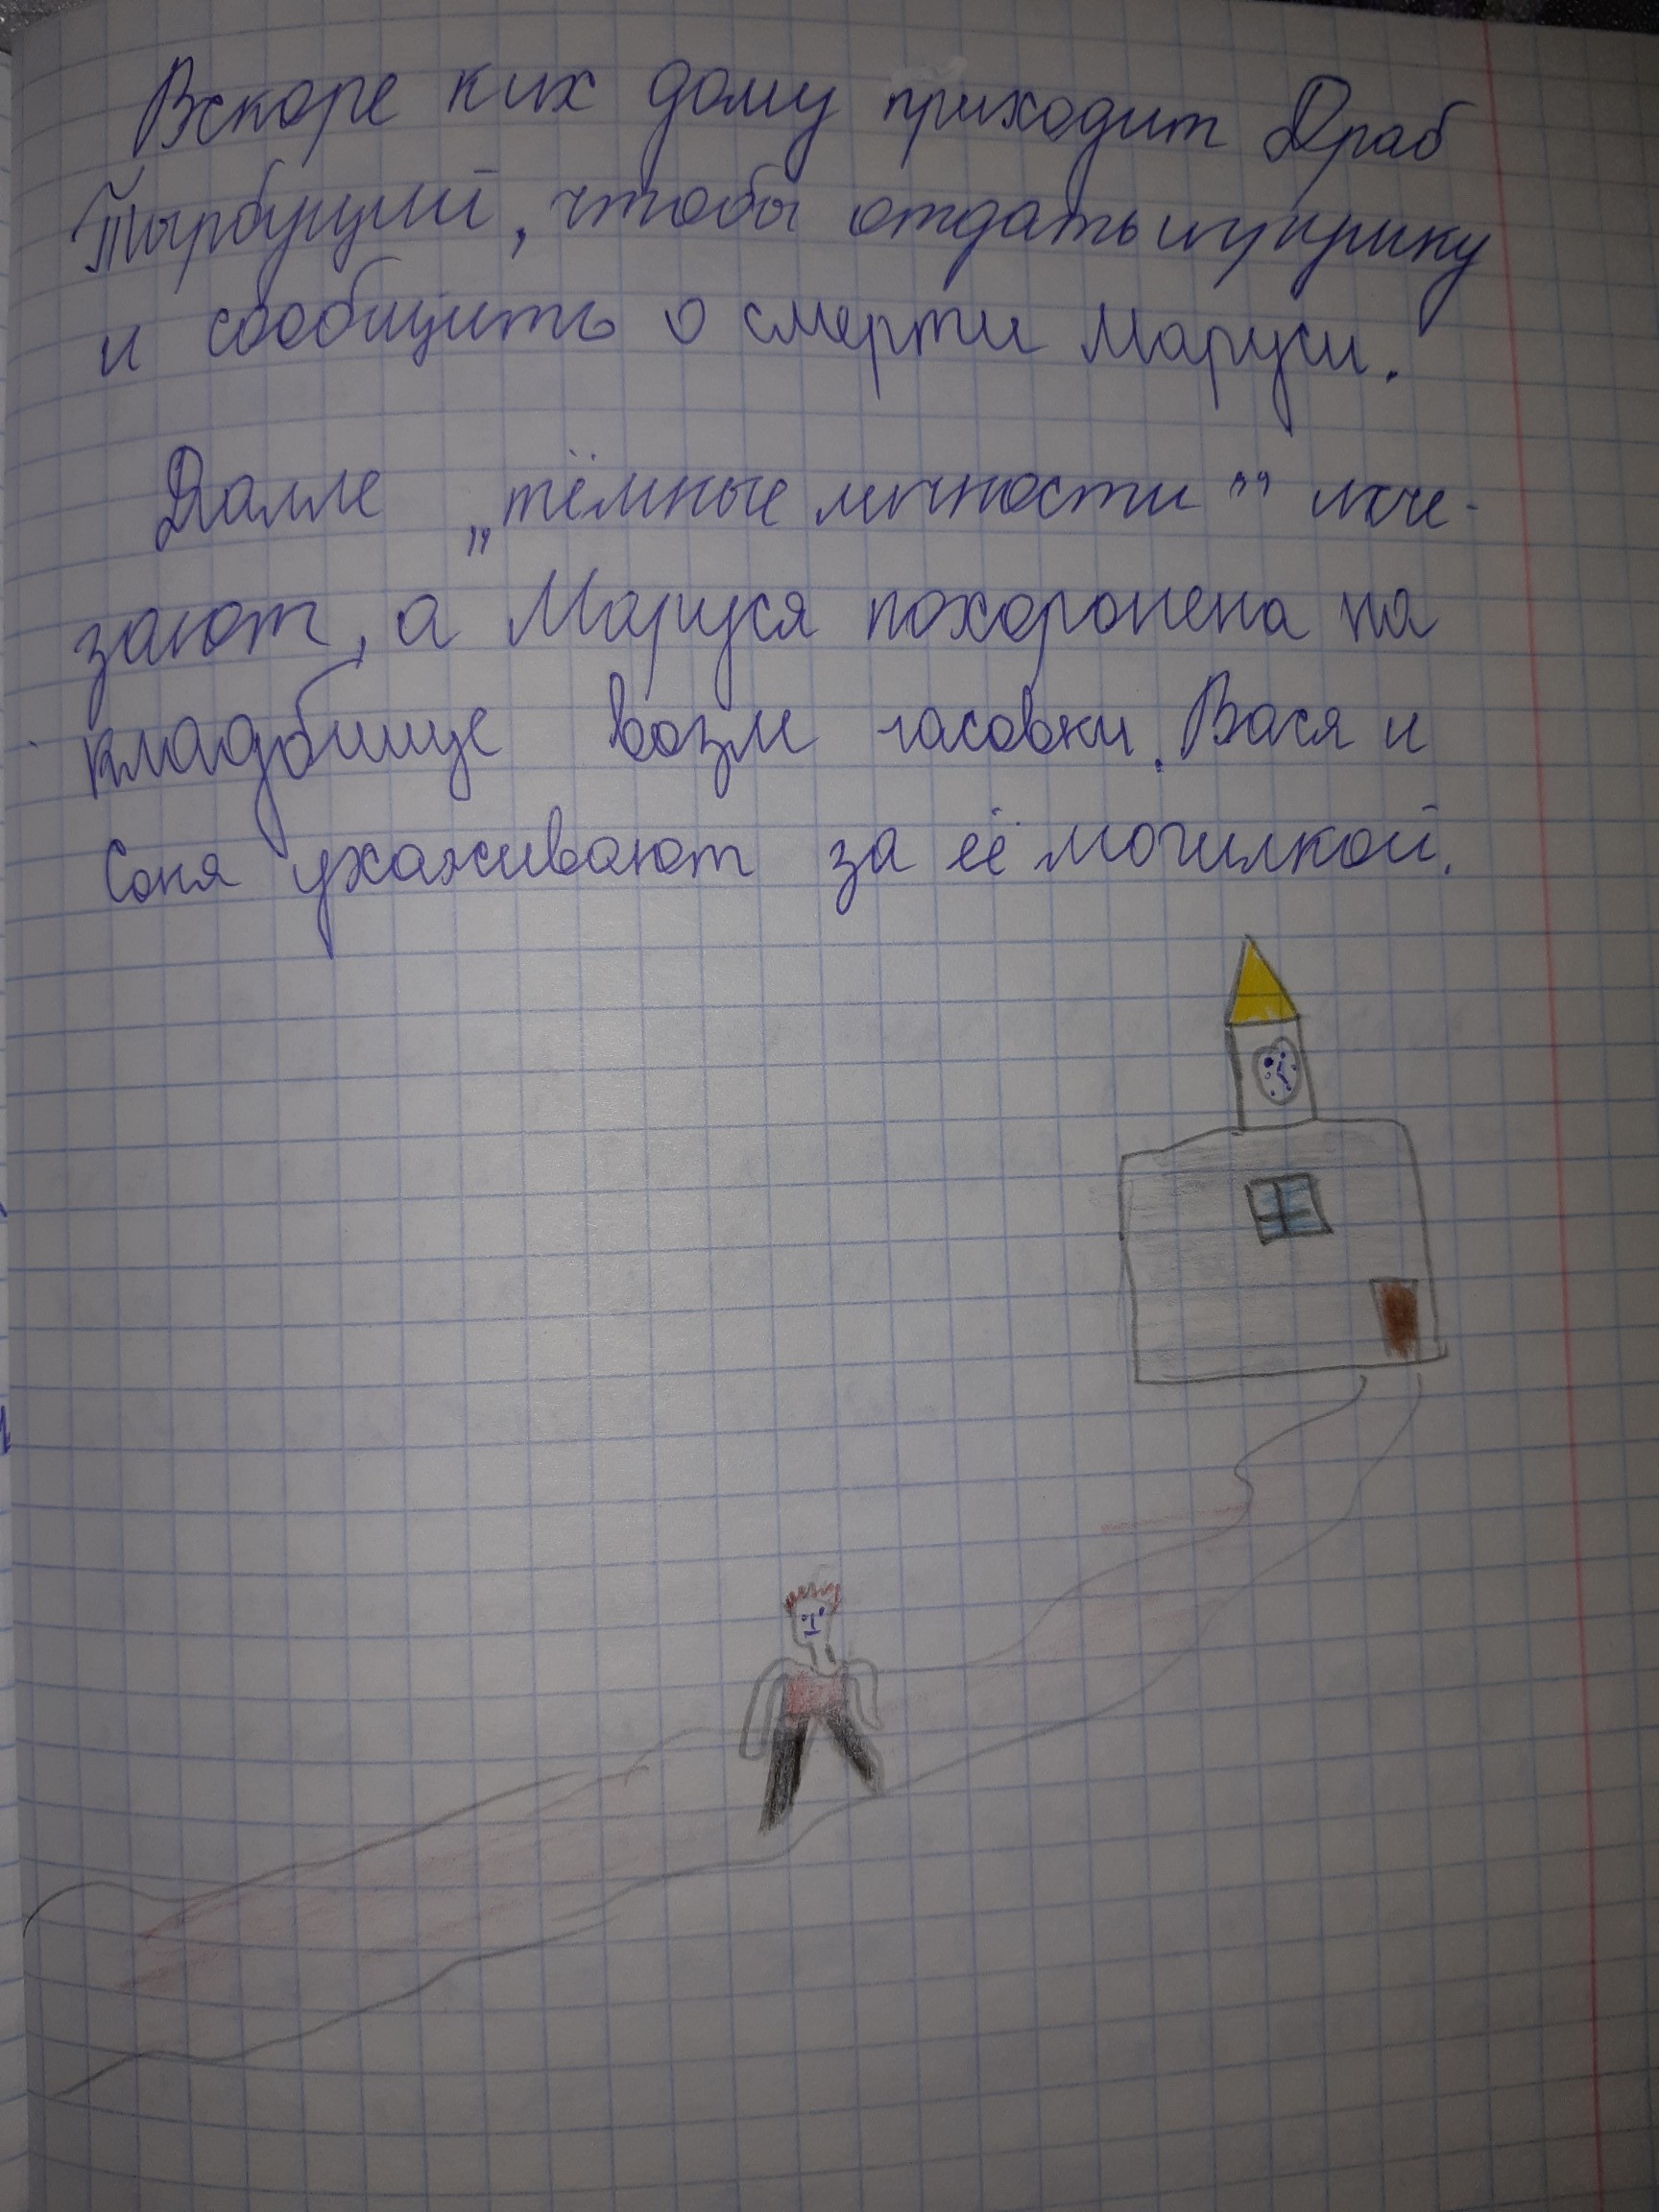 Вскоре к их дому приходит Драб
Тырбуций, чтобы отдать игрушку
и сообщить о смерти Маруси.
Далее „тёмные личности” исче-
зают, а Маруся похоронена на
кладбище возле часовки. Вася и
Соня ухаживают за её могилкой.